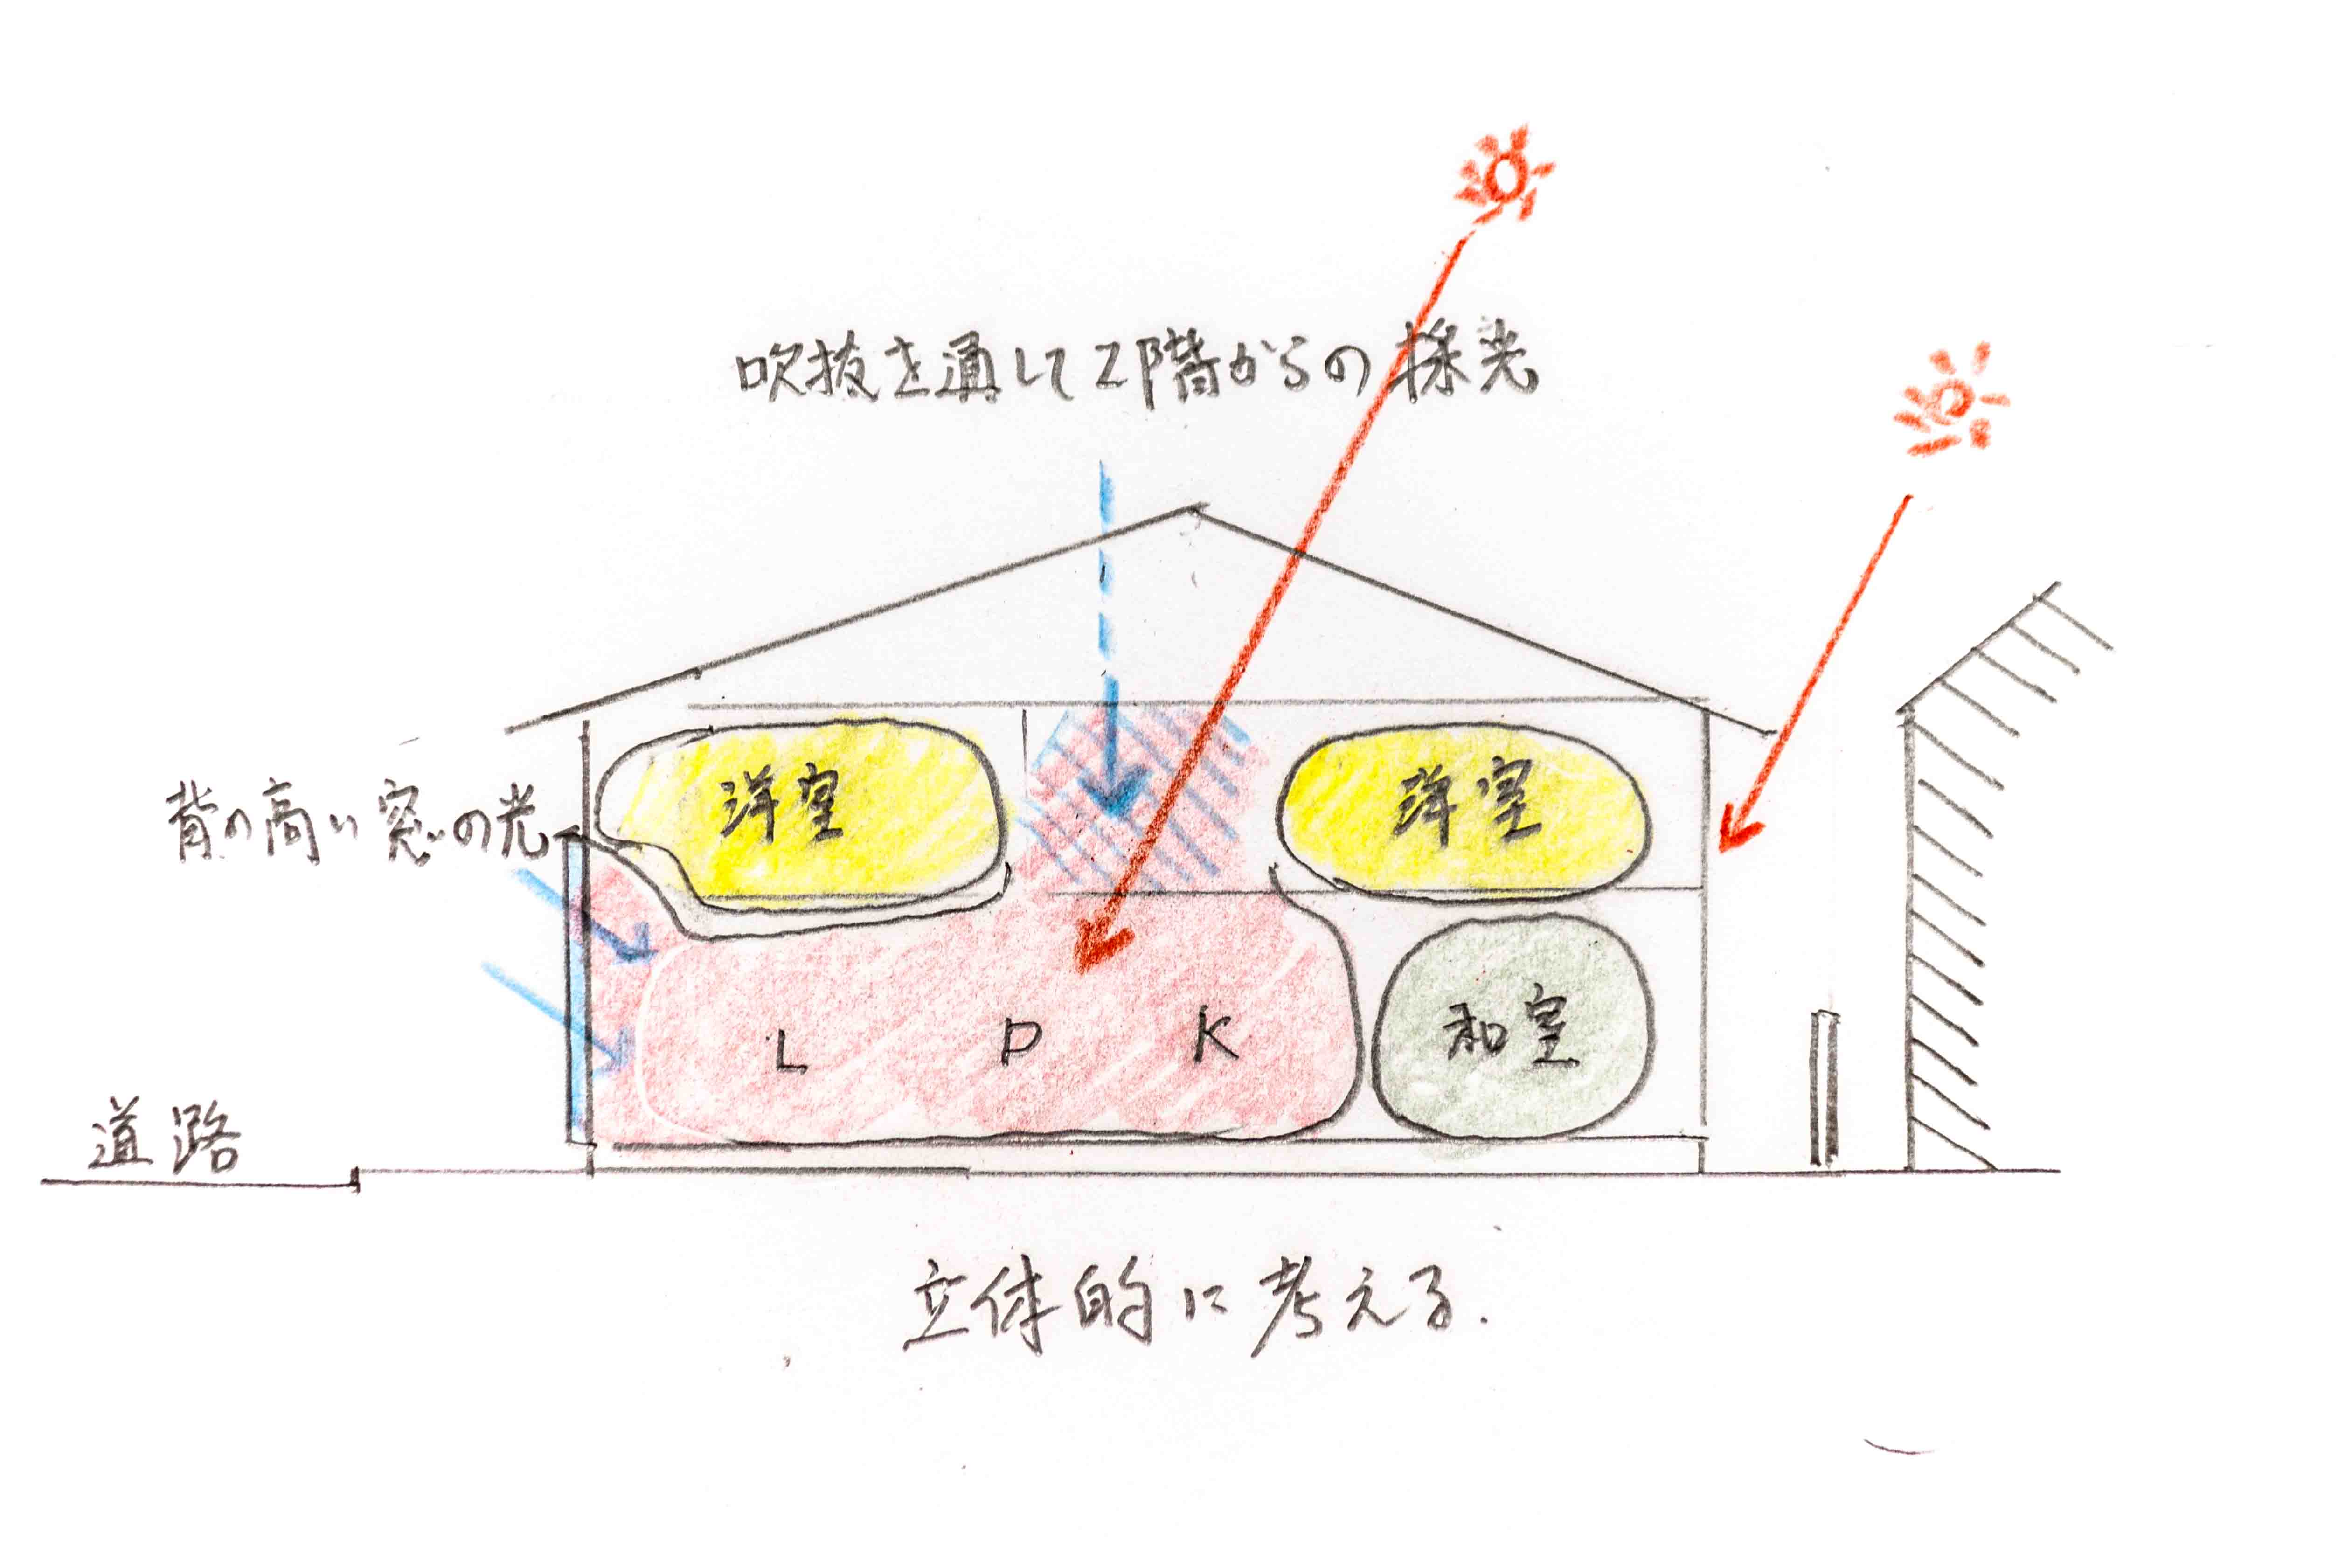 吹抜を通して2階からの採光
洋室
洋室
背の高い窓の光
L D K
和室
道路
立体的に考える.